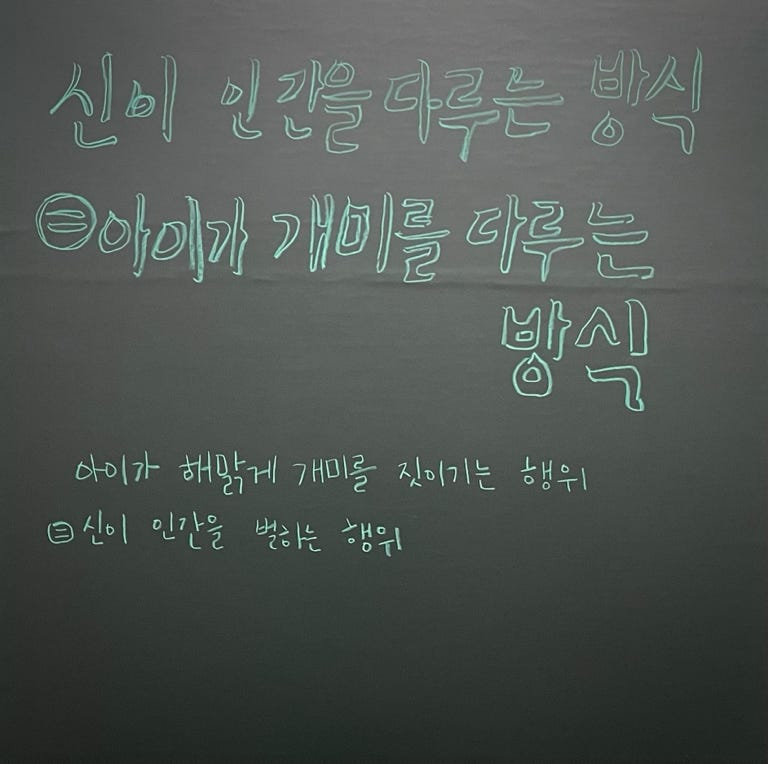 신이 인간을 다루는 방식
=아이가 개미를 다루는
방식
아이가 해맑게 개미를 짓이기는 행위
=신이 인간을 벌하는 행위